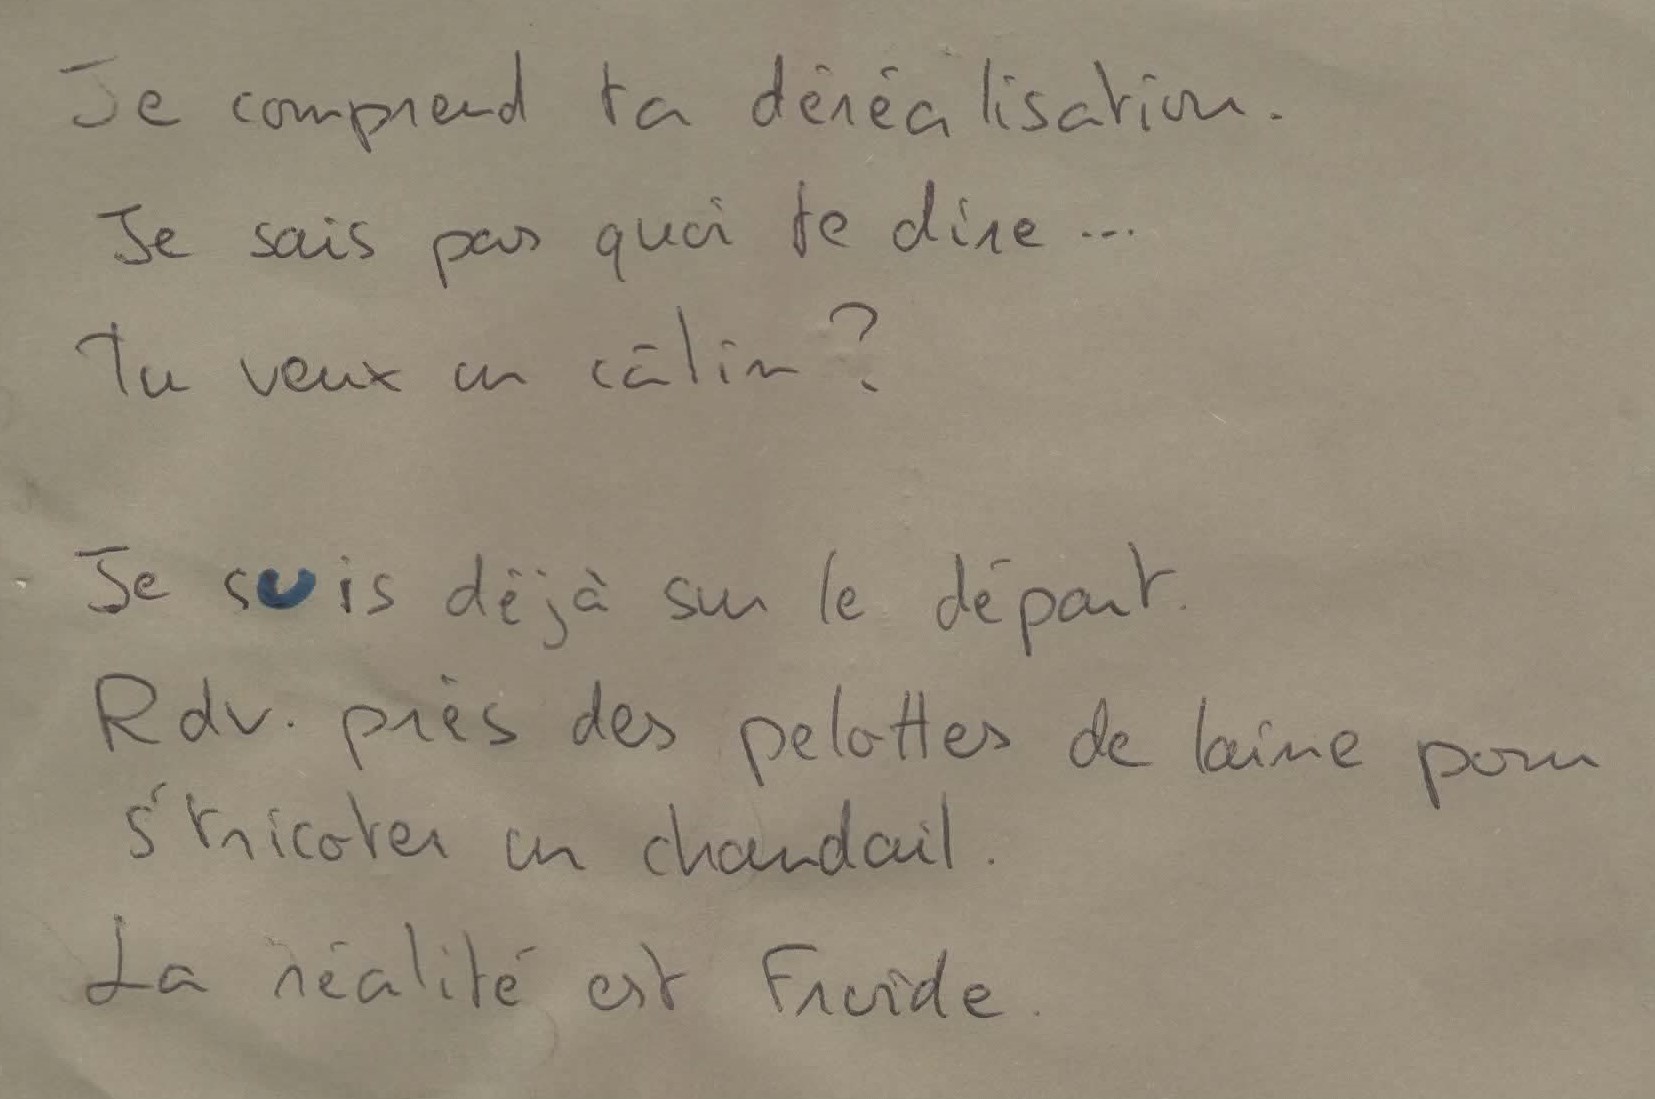 Je comprend ta déréalisation.
Je sais pas quoi te dire...
Tu veux un câlin ?
Je suis déjà sur le départ.
Rdv. près des pelottes de laine pour
s'tricoter un chandail.
La réalité est Froide.